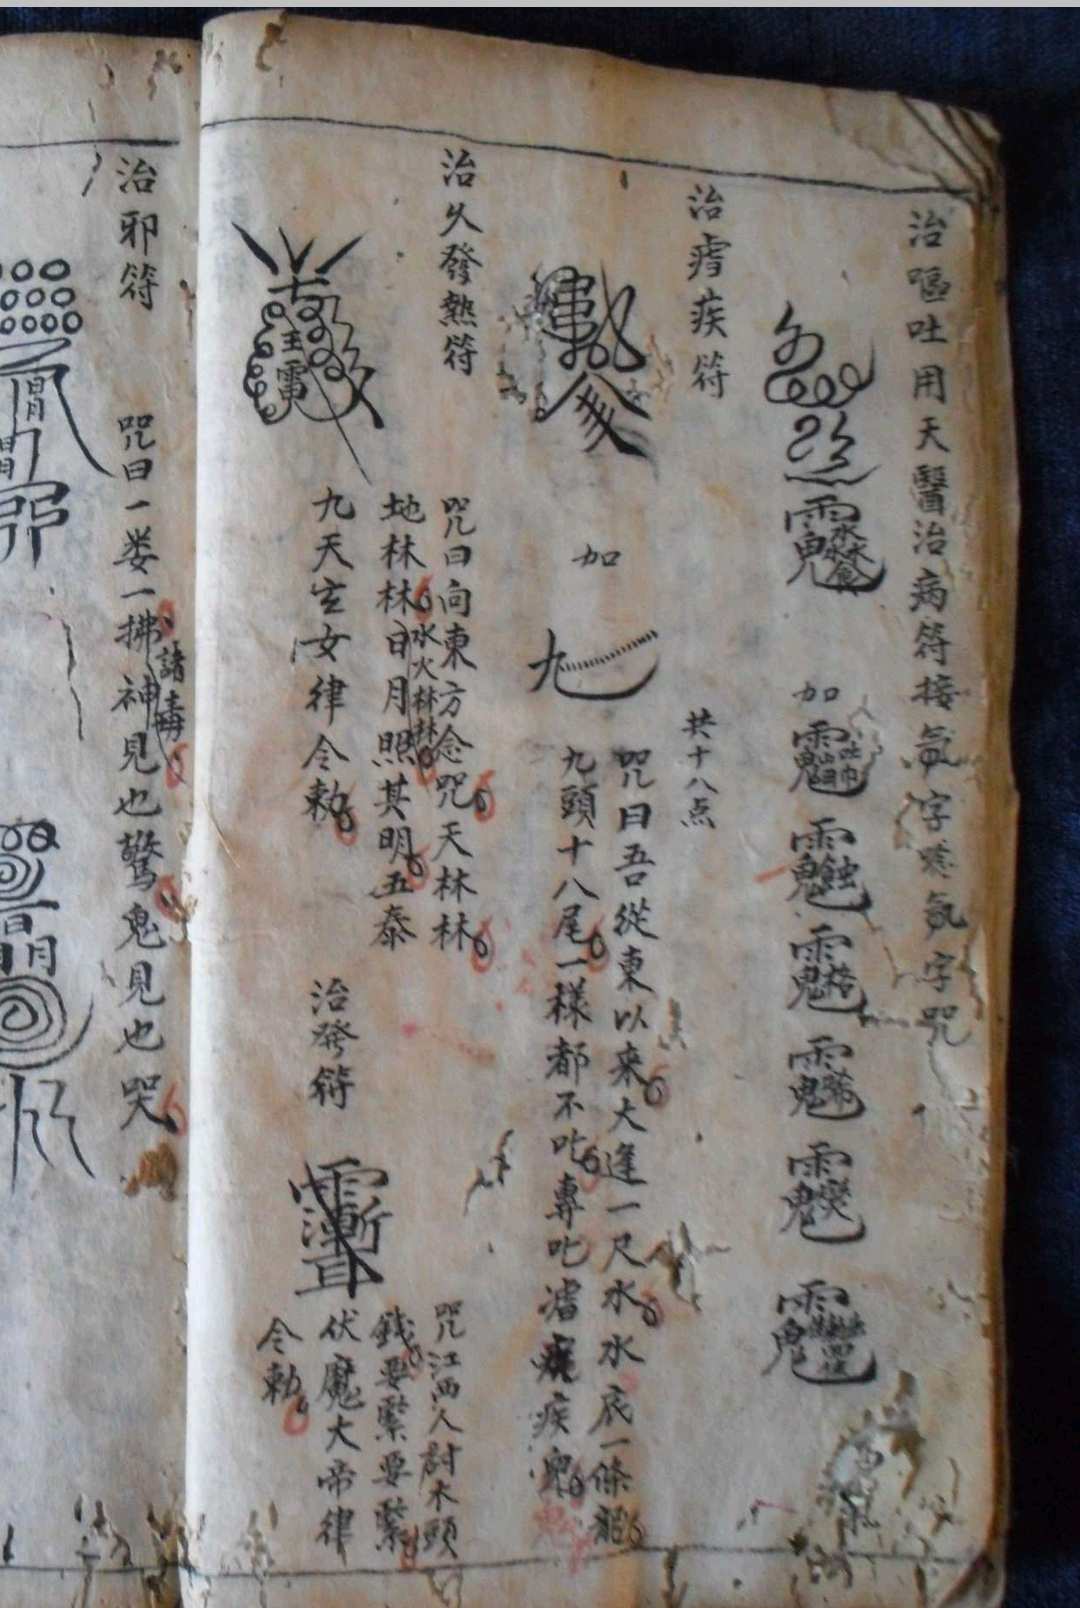 治嘔吐用天醫治病符接氣字咒
加
治瘧疾符
加
九
共十八点
咒曰吾從東以来大逢一尺水水底一條龍
九頭十八尾一樣都不叱專叱瘧疾鬼
治久發熱符
咒曰向東方念咒天林林
水火林林
地林林日月照其明五泰
九天玄女律令勅
治發符
咒江西人討木頭
錢要緊要緊
伏魔大帝律
令勅
治邪符
咒曰一娄一拂神見也驚鬼見也哭
諸毒